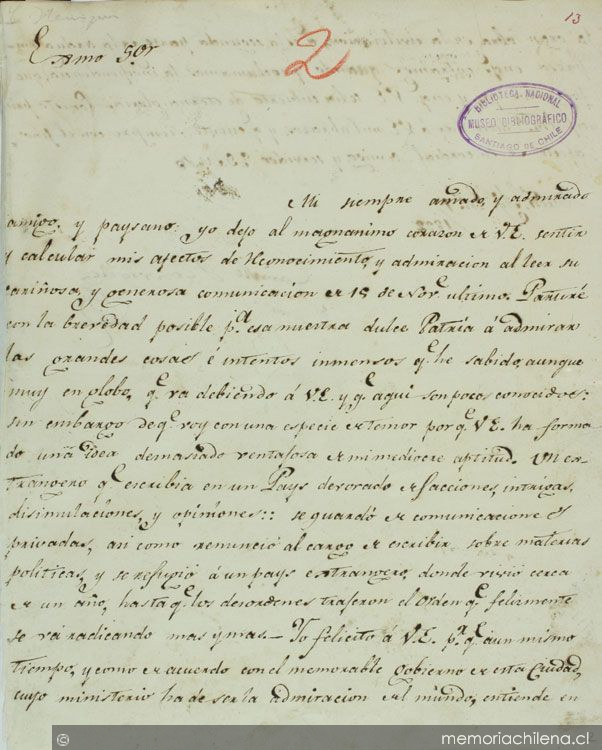 13
Exmo Sor
2
BIBLIOTECA NACIONAL
MUSEO BIBLIOGRÁFICO
SANTIAGO DE CHILE
Mi siempre amado, y admirado
amigo, y paysano: yo dejo al magnanimo corazon de V.E. sentir
y calcular mis afectos de reconocimiento, y admiracion al leer su
cariñosa, y generosa comunicacion de 15 de Nore. ultimo. Partiré
con la brevedad posible pa. esa nuestra dulce Patria á admirar
las grandes cosas é intentos inmensos qe. he sabido, aunque
muy en globo, qe. va debiendo á V.E. y qe. aqui son pocos conocidos:
sin embargo de qe. voy con una especie de temor por qe. V.E. ha forma
do una idea demasiado ventajosa de mi mediocre aptitud. Un es-
trangero qe. escribia en un Pays devorado de facciones, intrigas,
disimulaciones, y opiniones:: se guardó de comunicaciones
privadas, asi como renunció al cargo de escribir sobre materias
politicas, y se refugió á un pays extrangero, donde vivió cerca
de un año, hasta qe. los desordenes trageron el orden qe. felizmente
se vá radicando mas y mas_ Yo felicito á V.E. pr. qe. á un mismo
tiempo, y como de acuerdo con el memorable gobierno de esta Ciudad,
cuyo ministerio ha de ser la admiracion del mundo, entiende en
memoriachilena.cl